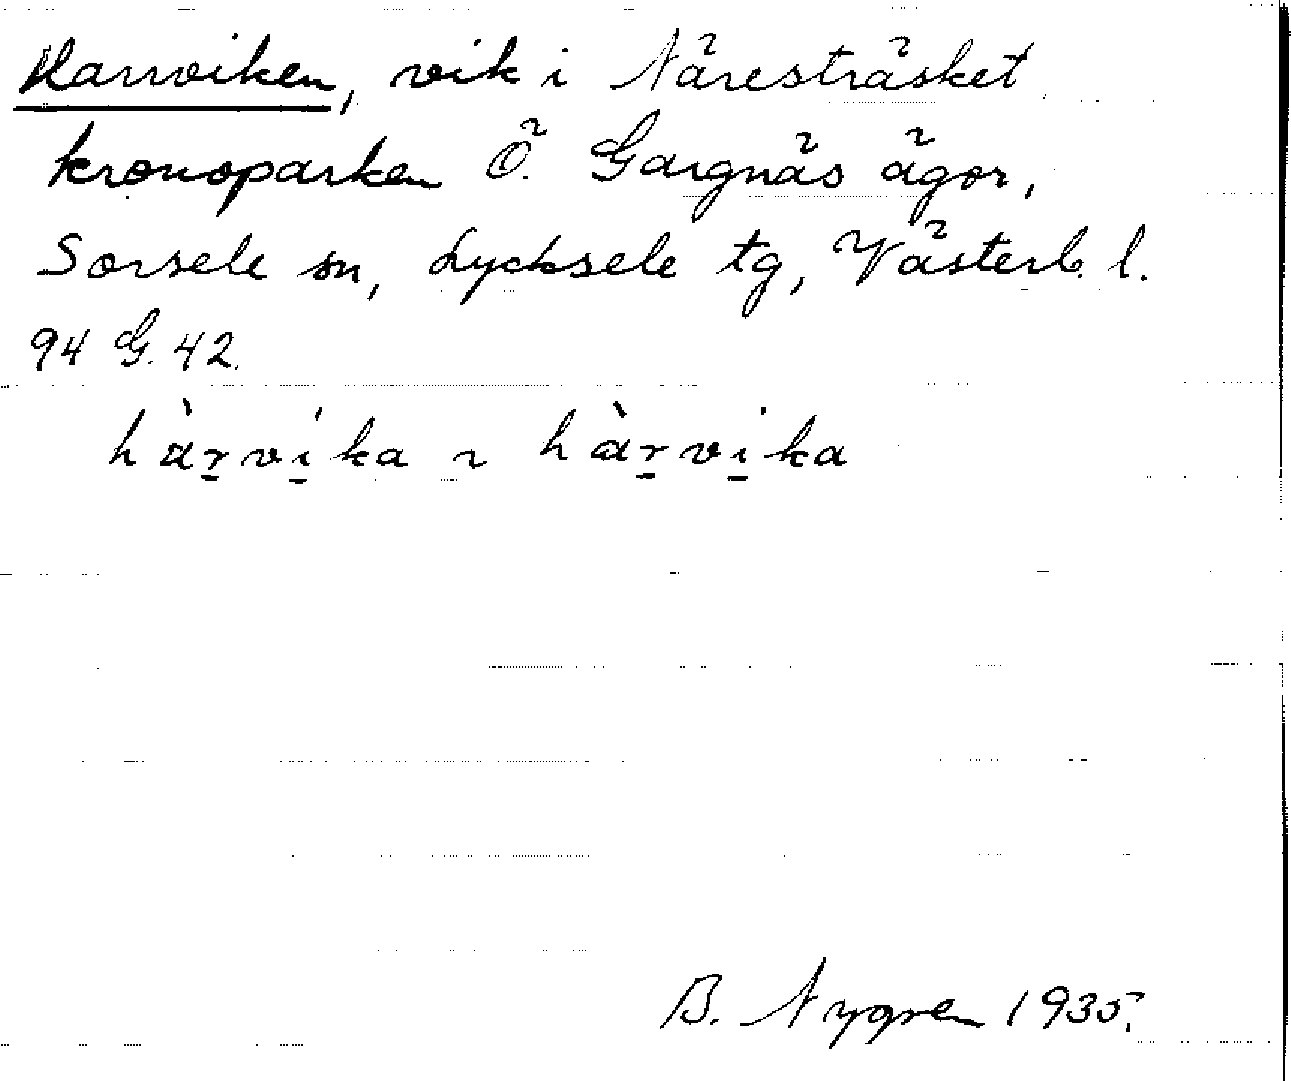 Harrviken, vik i Näresträsket
kronoparken Ö. Gargnäs ägor,
Sorsele sn, Lycksele tg, Västerb. l.
94 G. 42.
hàr̲ví̲ka ~ hàr̲vi̲ka
B. Nygren 1935.